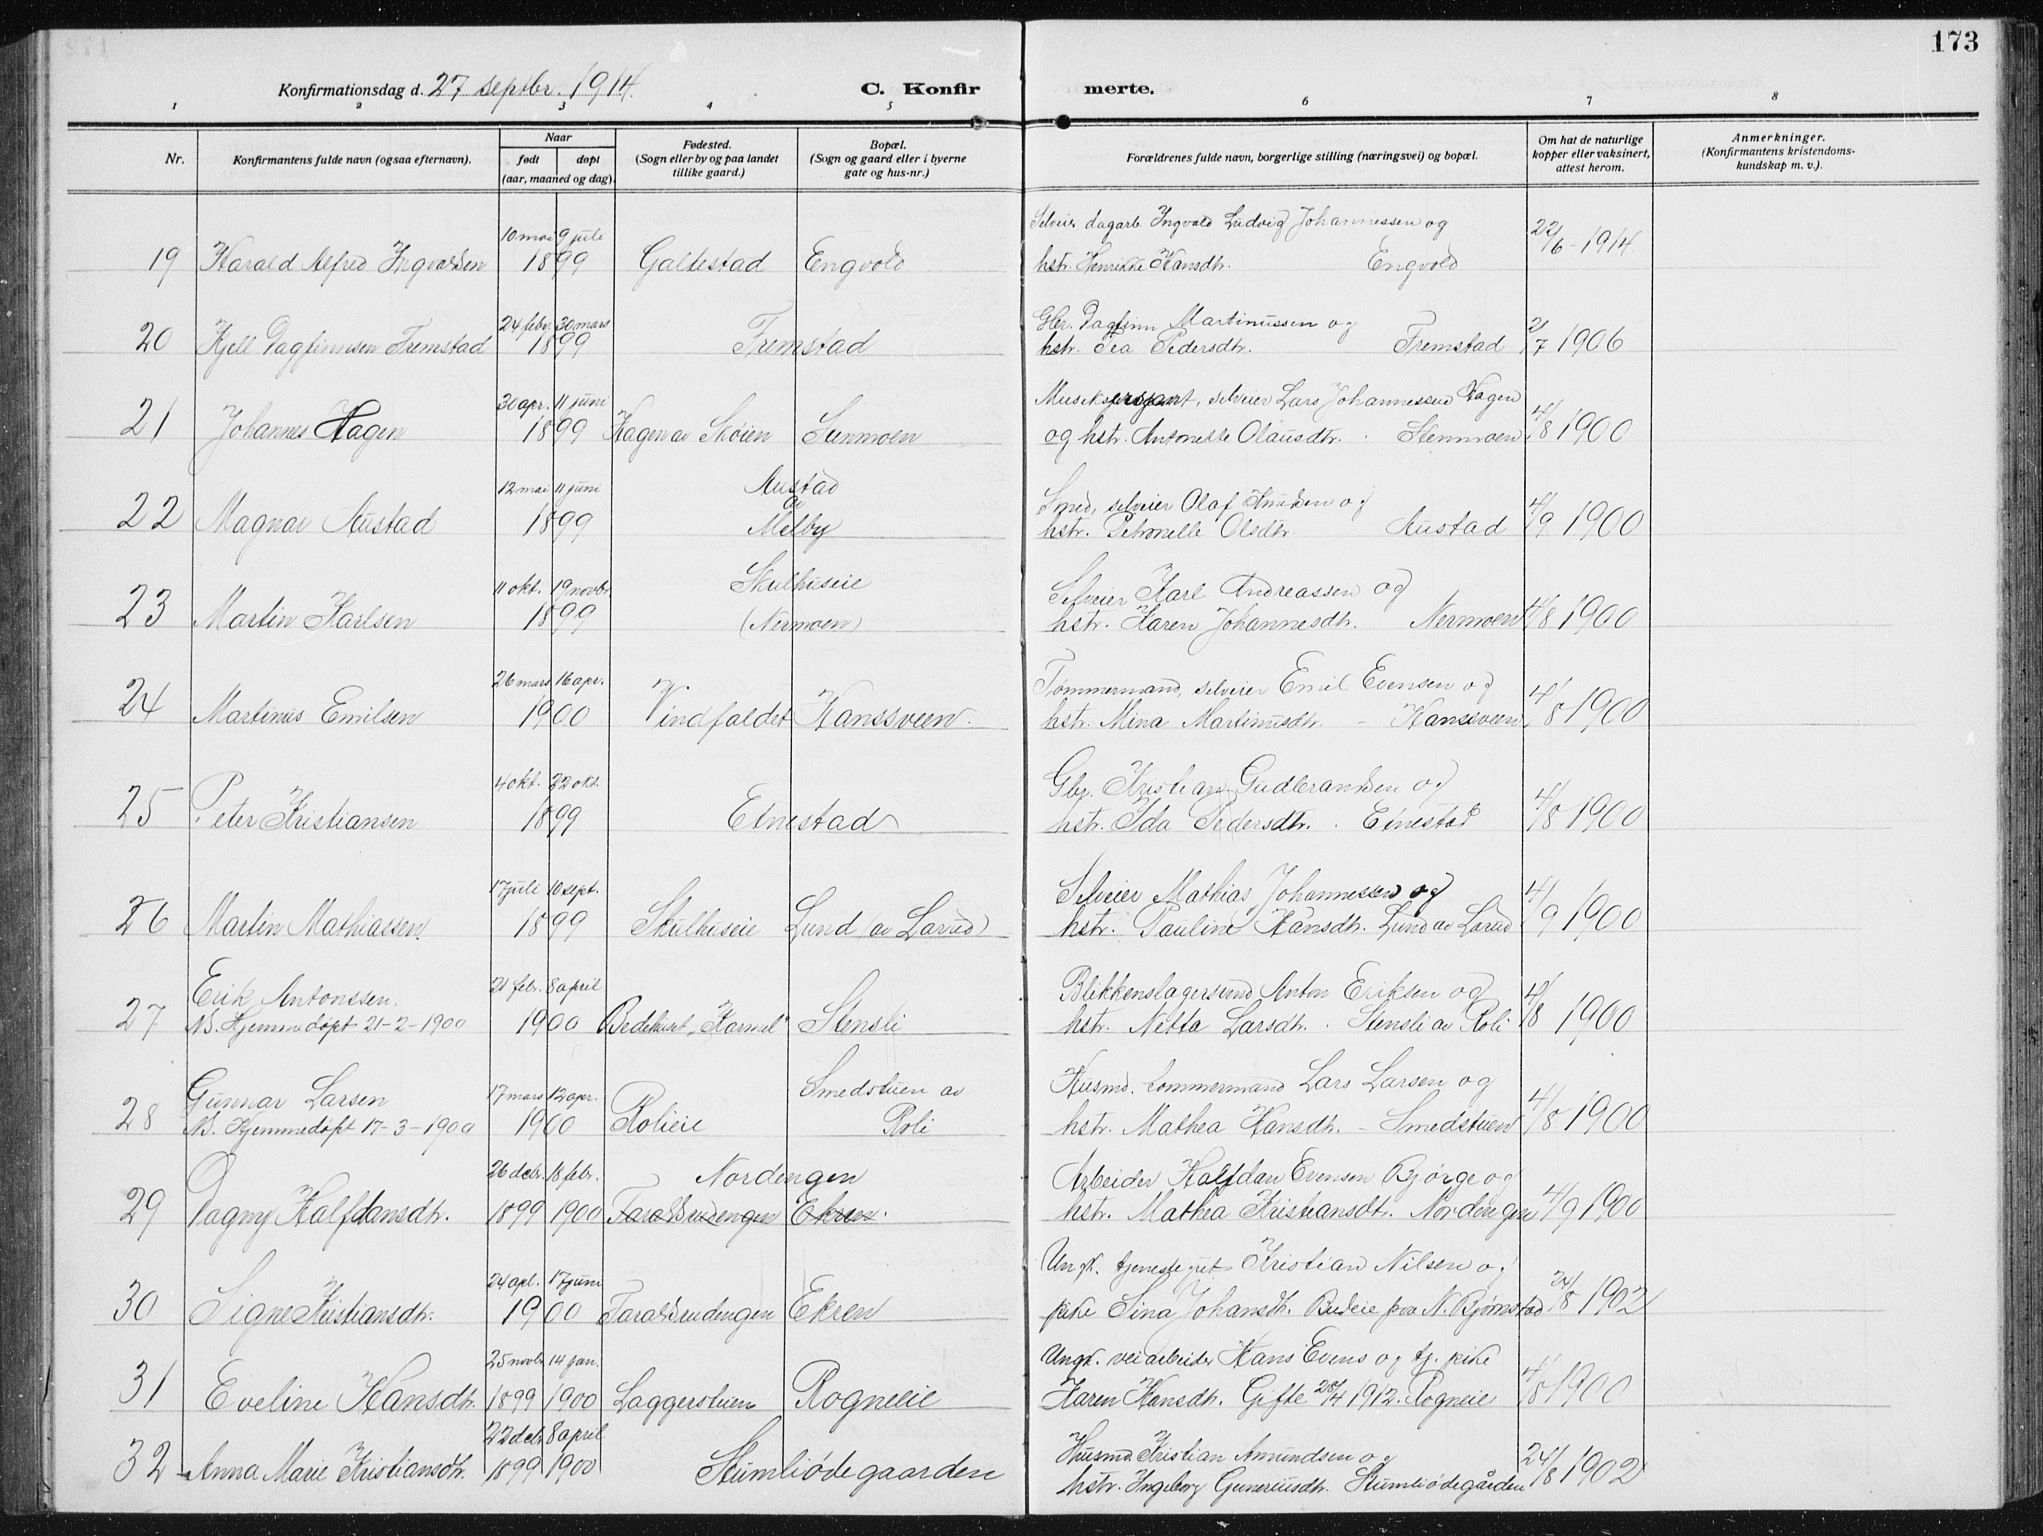 173
Konfirmationsdag d. 27 septbr. 1914.
C. Konfir merte.
1 2 3 4 5 6 7 8
Nr.
Konfirmantens fulde navn (ogsaa efternavn).
Naar
født døpt
(aar, maaned og dag).
Fødested.
(Sogn eller by og paa landet
tillike gaard.)
Bopæl.
(Sogn og gaard eller i byerne
gate og hus-nr.)
Forældrenes fulde navn, borgerlige stilling (næringsvei) og bopæl.
Om hat de naturlige
kopper eller vaksinert,
attest herom.
Anmerkninger.
(Konfirmantens kristendoms-
kundskap m. v.).
10 mai 9 juli Selveier dagarb. Ingvald Ludvig Johannessen og
19 Harald Alfred Ingvaldsen 1899 Galtestad Engvold hstr. Henrikke Hansdtr. Engvold 22/6-1914
24 febr. 30 mars Gbr. Dagfinn Martinussen og
20 Kjell Dagfinnsen Fremstad 1899 Fremstad hstr. Pedersdtr. Fremstad 2/7 1906
30 apr. 11 juni selveier Lars Johannessen Hagen
21 Johannes Hagen 1899 Hagen av Skøien Stenmoen og hstr. Antonette Olausdtr. Stenmoen 4/8 1900
12 mai 11 juni Austad Smed, selveier Olaf Knudsen og
av
22 Magnar Austad 1899 Melby hstr. Petronelle Olsdtr. Austad 4/9 1900
11 okt. 19 novbr. Skulhuseie Selveier Karl Andreassen og
23 Martin Karlsen 1899 (Nermoen) hstr. Karen Johannesdtr. Nermoen 4/8 1900
26 mars 16 apr. Tømmermand, selveier Emil Evensen og
24 Martinus Emilsen 1900 Vindfaldet Hanssveen. hstr. Mina Martinusdtr. - Hanssveen 4/8 1900
4 okt. 22 okt. Gbr. Kristian Gudbrandsen og
25 Peter Kristiansen 1899 Etnestad hstr. Ida Pedersdtr. . Etnestad 4/8 1900
17 juli 10 sept. Selveier Mathias Johannessen og
26 Martin Mathiassen. 1899 Skulhuseie Lund (av Larud) hstr. Pauline Hansdtr. Lund av Larud 4/9 1900
Erik Antonssen. 21 febr. 8 april Blikkenslagersvend Anton Eriksen og
27 NB. Hjemmedøpt 21-2-1900 1900 Bedehuset "Karmel" Stensli hstr. Netta Larsdtr. . Stensli av Roli 4/8 1900
Gunnar Larsen 17 mars 12 apr. Smedstuen av Husmd. tømmermand Lars Larsen og
28 NB. Hjemmedøpt 17-3-1900 1900 Rolieie Roli hstr. Mathea Hansdtr. - Smedstuen 4/8 1900
26 dcbr. 18 febr. Nordengen Arbeider Halfdan Evensen Bjørge og
29 Dagny Halfdansdtr. 1899 1900 Taraldrudengen Ekren. hstr. Mathea Kristiansdtr. Nordengen 4/9 1900
24 apl. 17 juni Ungk. tjenestegut Kristian Nilsen og
30 Signe Kristiansdtr. 1900 Taraldrudengen Ekren pike Sina Johansdtr. Budeie paa N. Bjørnstad 24/8 1902
25 novbr 14 jan. Ungk. veiarbeider Hans Evens og tj. pike
31 Eveline Hansdtr. 1899 1900 Laggerstuen Rogneeie Karen Hansdtr. Gifte 28/4 1912. Rogneie 4/8 1900
22 dcbr 8 april Husmd. Kristian Amundsen og
32 Anna Marie Kristiansdtr. 1899 1900 Skumliødegaarden hstr. Ingeborg Gunneriusdtr. Skumliødegården 24/8 1902